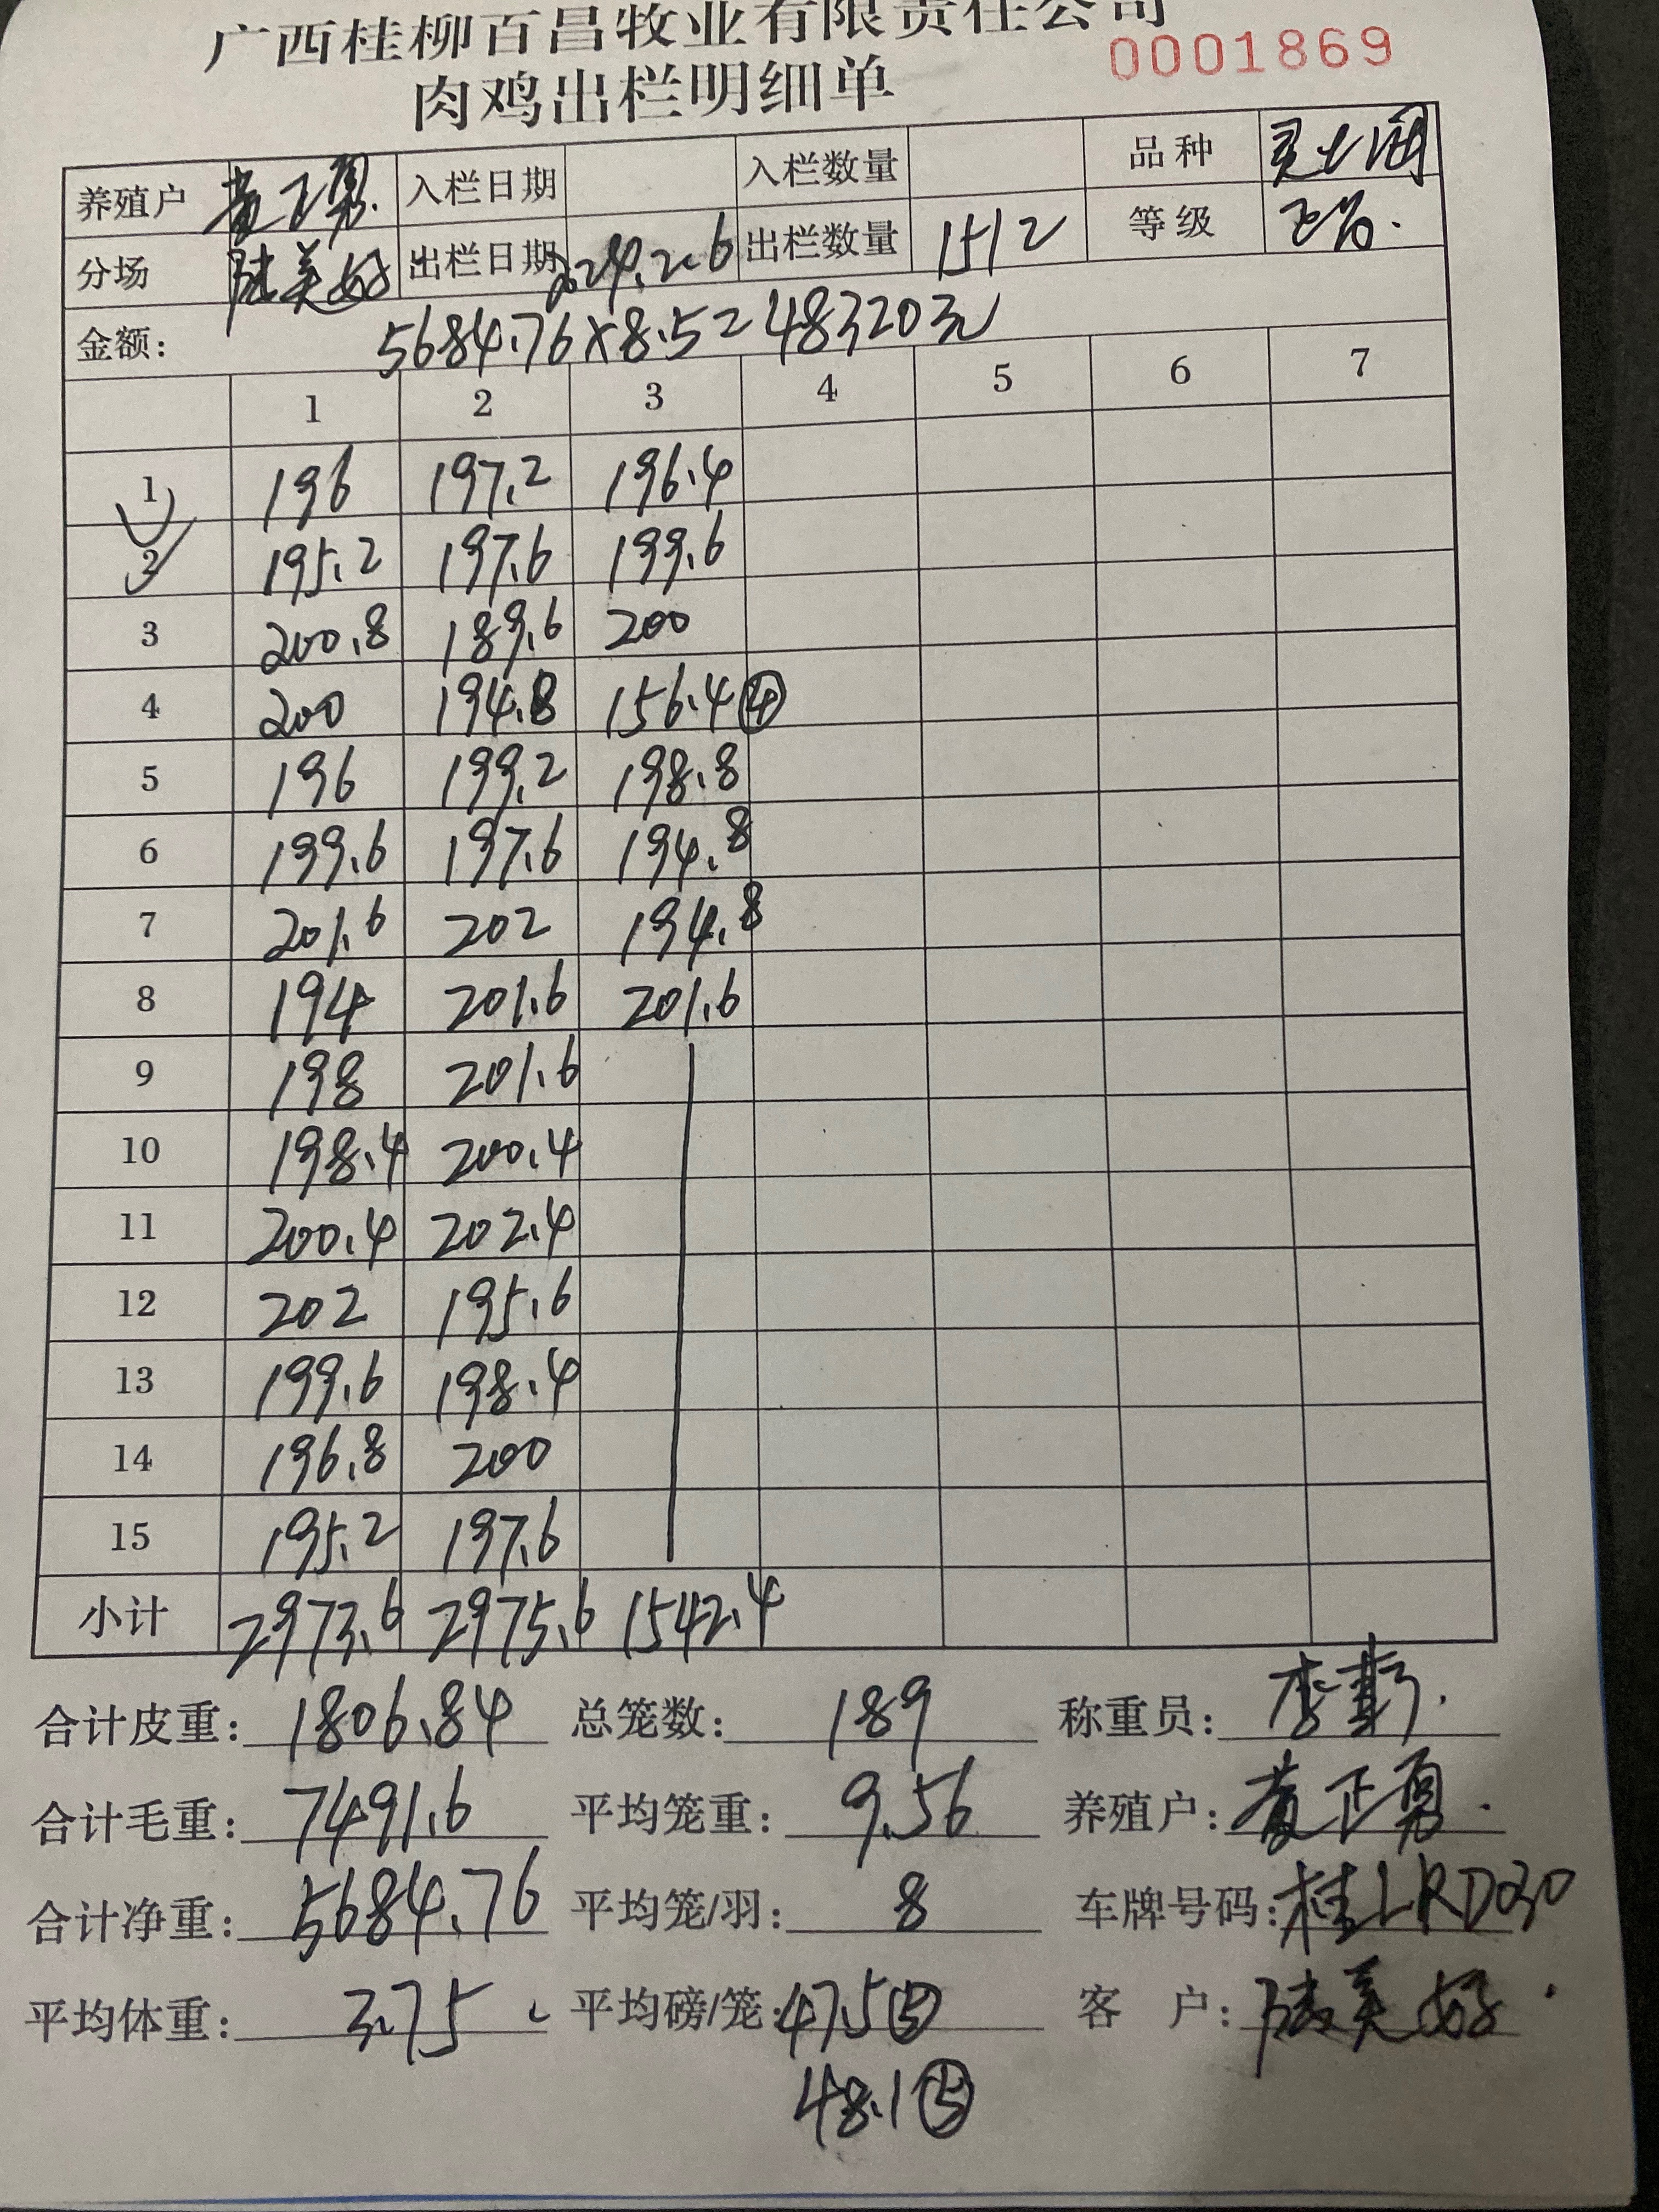 广西桂柳百昌牧业有限责任公司
0001869
肉鸡出栏明细单
养殖户 黄正勇. 入栏日期 入栏数量 品种
分场 陆美好 出栏日期 2024.2.6 出栏数量 1512 等级 正品.
金额: 5684.76×8.5=48320元
1 2 3 4 5 6 7
1 196 197.2 196.4
2 195.2 197.6 199.6
3 200.8 189.6 200
4 200 194.8 156.4 ④
5 196 199.2 198.8
6 199.6 197.6 194.8
7 201.6 202 194.8
8 194 201.6 201.6
9 198 201.6
10 198.4 200.4
11 200.4 202.4
12 202 195.6
13 199.6 198.4
14 196.8 200
15 195.2 197.6
小计 2973.6 2975.6 1542.4
合计皮重: 1806.84 总笼数: 189 称重员: 李
合计毛重: 7491.6 平均笼重: 9.56 养殖户: 黄正勇.
合计净重: 5684.76 平均笼/羽: 8 车牌号码: 桂LRD030
平均体重: 3.75 平均磅/笼: 47.5⑤ 客 户: 陆美好.
48.1⑤